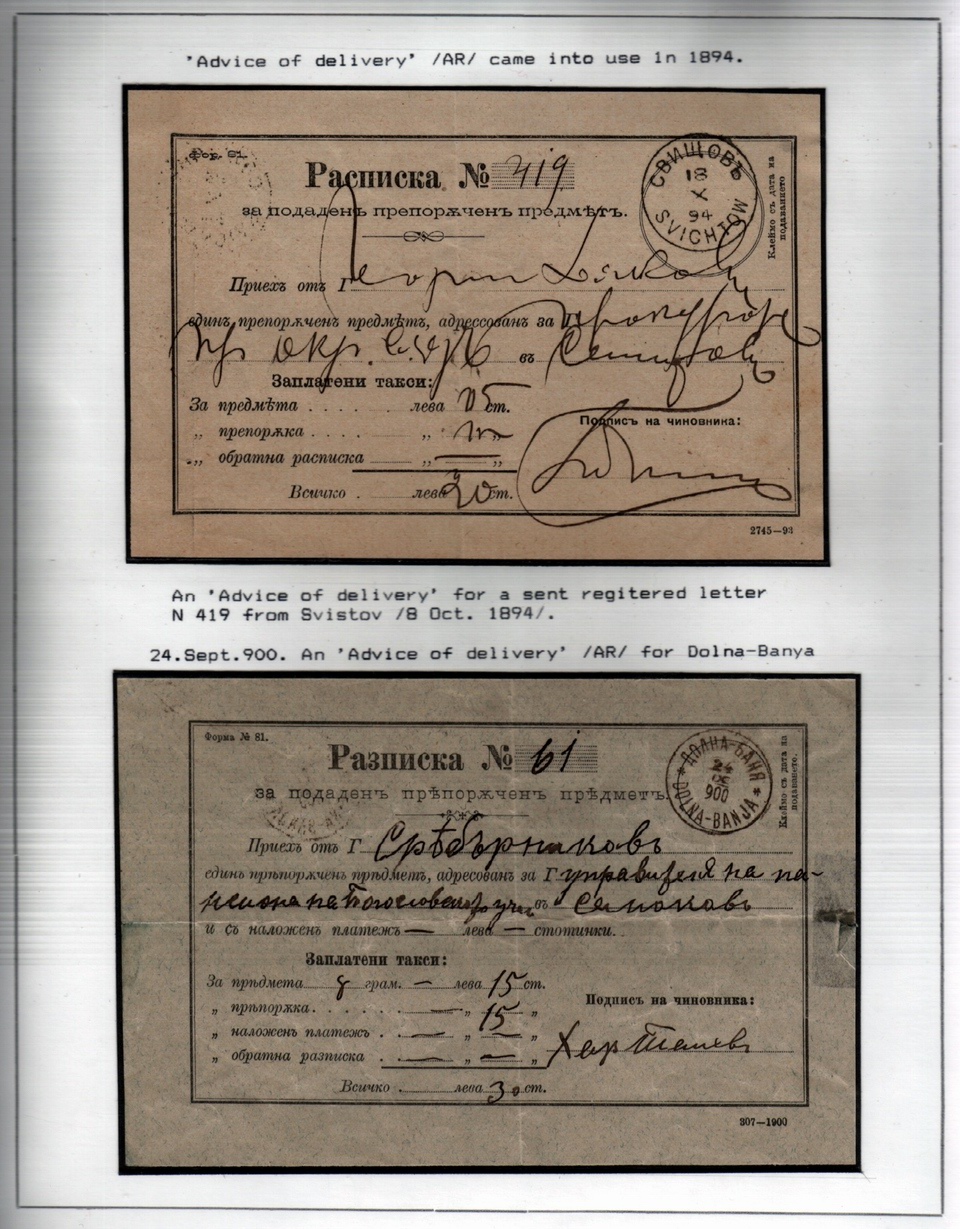 'Advice of delivery' /AR/ came into use in 1894.
Фор. 81.
Расписка № 419
за подаденъ препорѫченъ предмѣтъ.
СВИЩОВЪ
18
X
94
SVICHTOW
Клеймо съ дата на
подаванието
Приехъ отъ Г
единъ препорѫченъ предмѣтъ, адрессованъ за
окр. въ
Заплатени такси:
За предмѣта . . . . . лева 15 ст.
„ препорѫка . . . . „ „
„ обратна расписка „ „
Всичко . лева 20 ст.
Подпись на чиновника:
2745—93
An 'Advice of delivery' for a sent regitered letter
N 419 from Svistov /8 Oct. 1894/.
24.Sept.900. An 'Advice of delivery' /AR/ for Dolna-Banya
Форма № 81.
Разписка № 61
за подаденъ прѣпорѫченъ прѣдметъ.
ДОЛНА-БАНЯ
24
IX
900
DOLNA-BANJA
Клеймо съ дата на
подаванието.
Приехъ отъ Г Срѣбърниковъ
единъ прѣпорѫченъ прѣдметъ, адресованъ за Г управителя на па-
нсиона на Богословско уч. въ Самоковъ
и съ наложенъ платежъ — лева — стотинки.
Заплатени такси:
За прѣдмета 8 грам. — лева 15 ст.
„ прѣпорѫка . . . . . — „ 15 „
„ наложенъ платежъ . . — „ — „
„ обратна разписка . . — „ — „
Всичко . лева 30 ст.
Подпись на чиновника:
307—1900